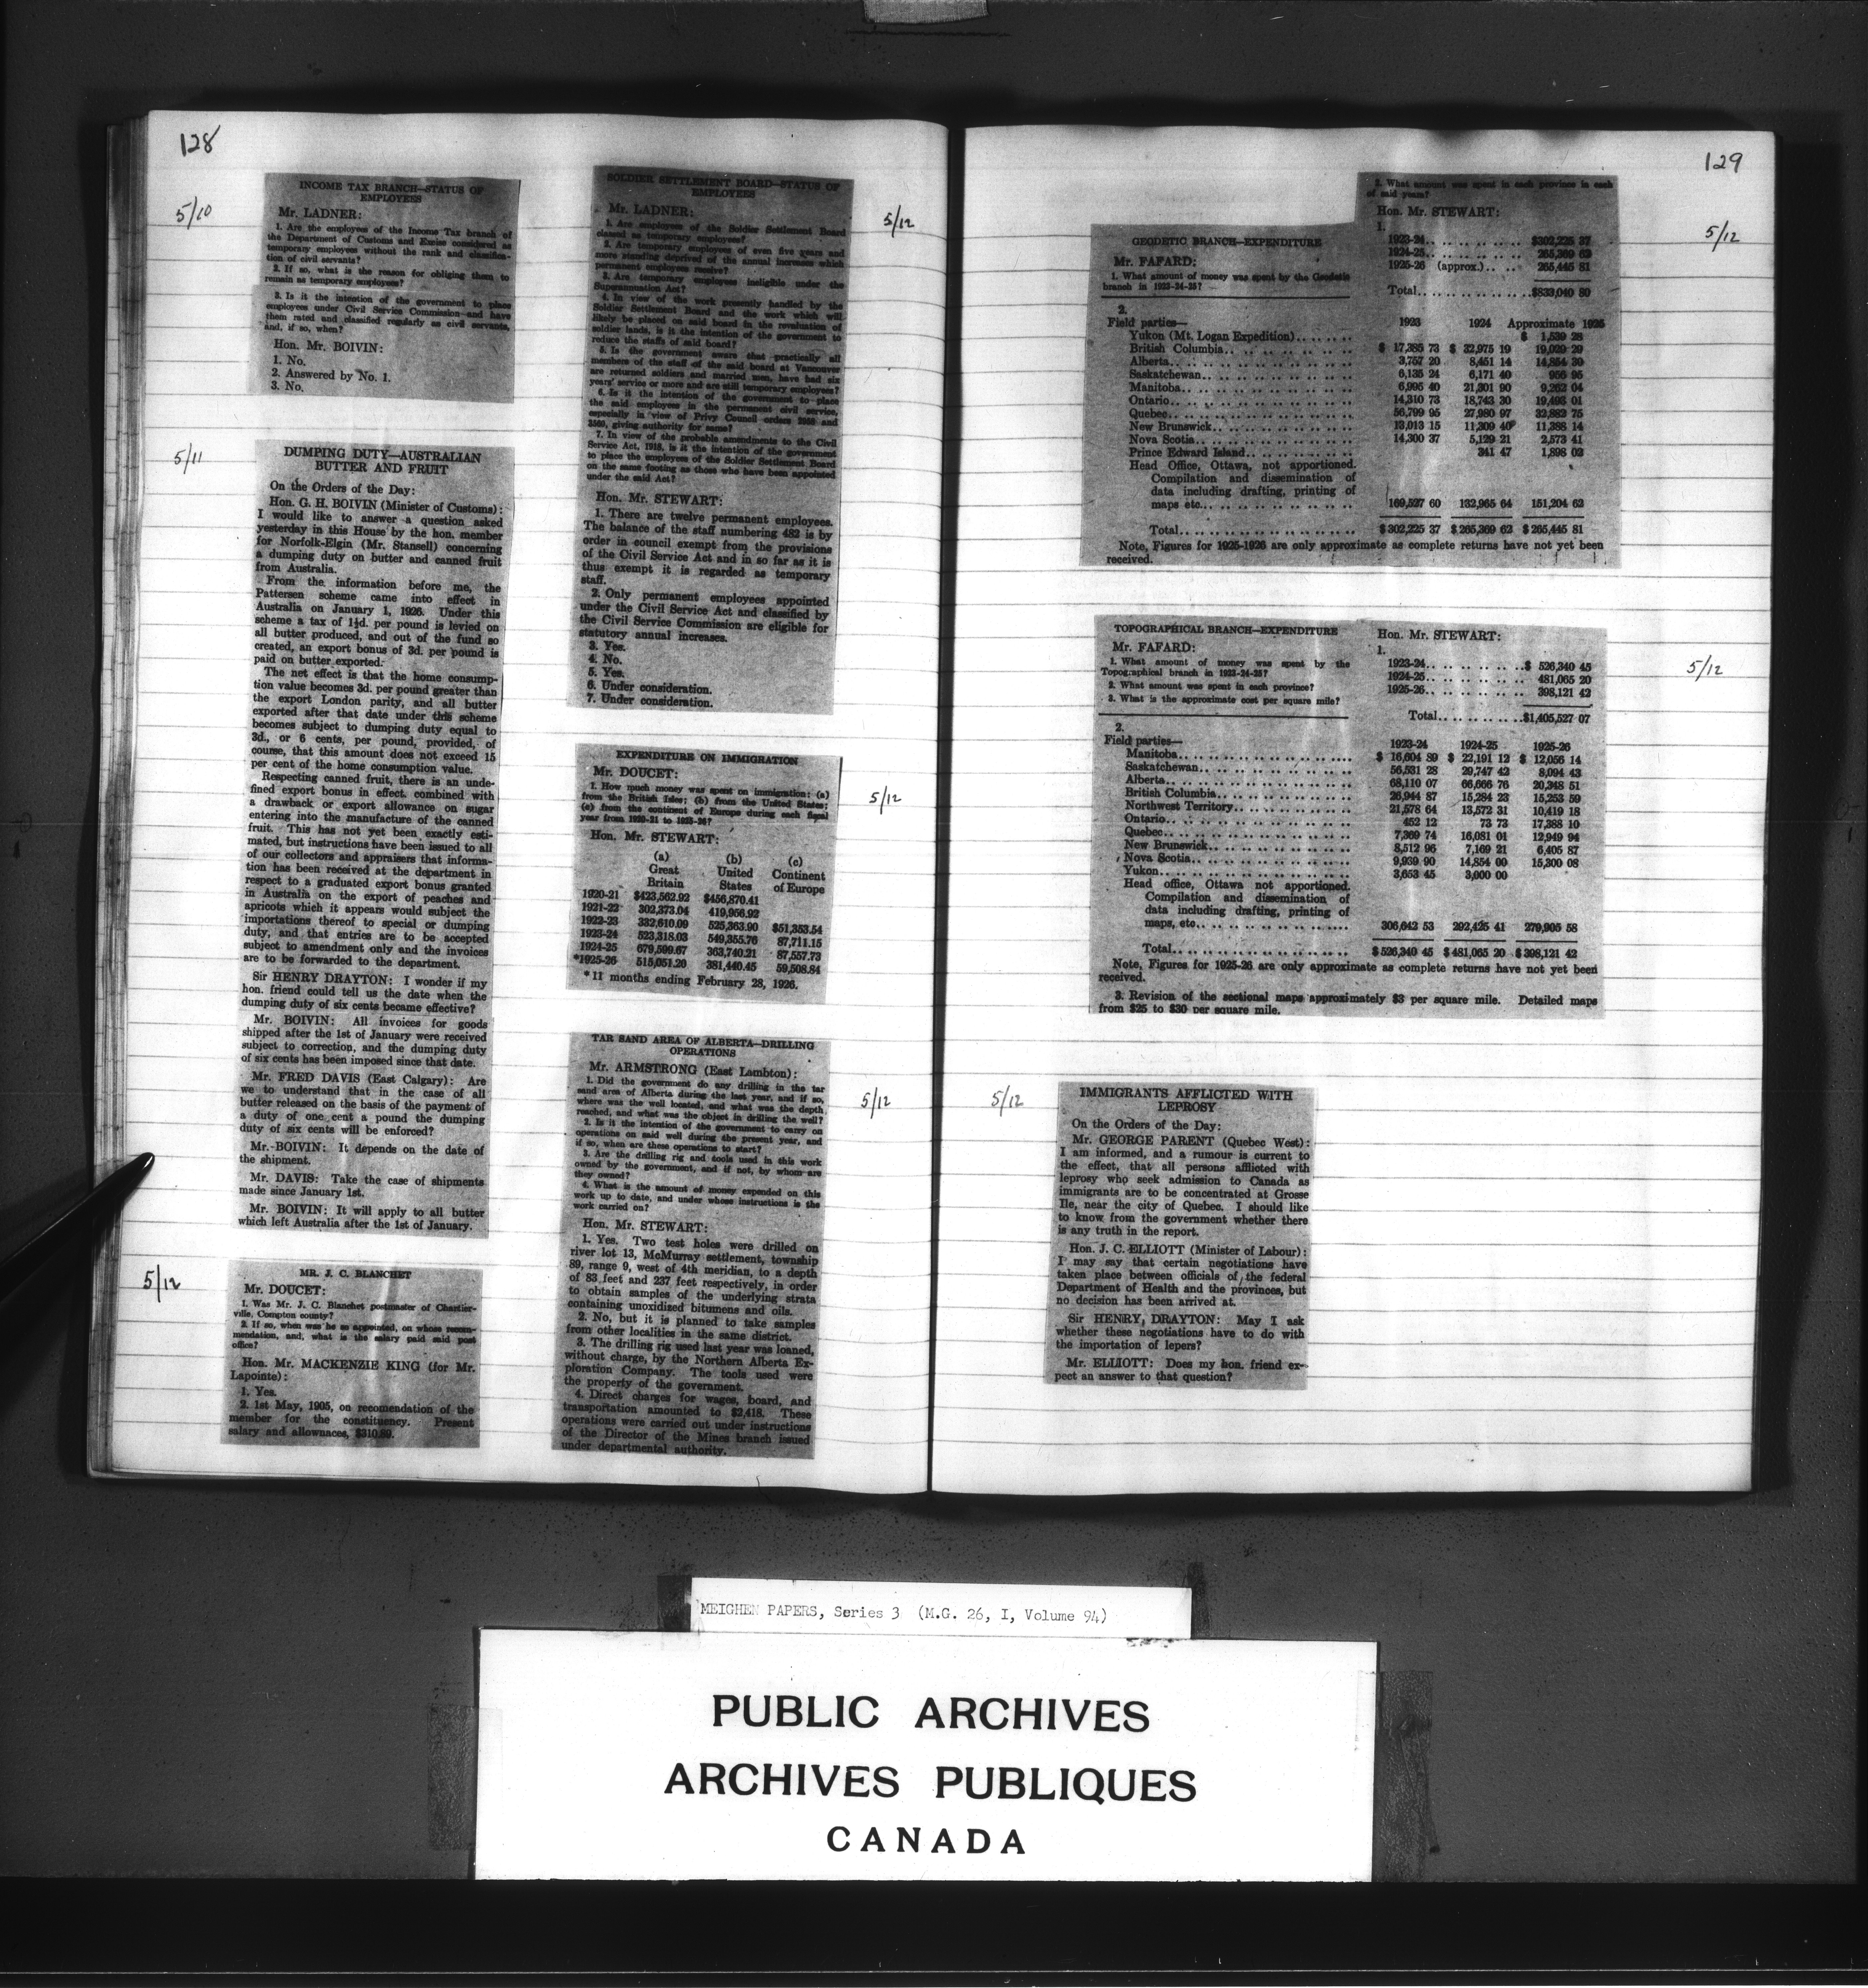 128
5/10
INCOME TAX BRANCH—STATUS OF
EMPLOYEES
Mr. LADNER:
1. Are the employees of the Income Tax branch of
the Department of Customs and Excise considered as
temporary employees without the rank and classifica-
tion of civil servants?
2. If so, what is the reason for obliging them to
remain as temporary employees?
3. Is it the intention of the government to place
employees under Civil Service Commission and have
them rated and classified regularly as civil servants,
and, if so, when?
Hon. Mr. BOIVIN:
1. No.
2. Answered by No. 1.
3. No.
5/11
DUMPING DUTY—AUSTRALIAN
BUTTER AND FRUIT
On the Orders of the Day:
Hon. G. H. BOIVIN (Minister of Customs):
I would like to answer a question asked
yesterday in this House by the hon. member
for Norfolk-Elgin (Mr. Stansell) concerning
a dumping duty on butter and canned fruit
from Australia.
From the information before me, the
Pattersen scheme came into effect in
Australia on January 1, 1926. Under this
scheme a tax of 1½d. per pound is levied on
all butter produced, and out of the fund so
created, an export bonus of 3d. per pound is
paid on butter exported.
The net effect is that the home consump-
tion value becomes 3d. per pound greater than
the export London parity, and all butter
exported after that date under this scheme
becomes subject to dumping duty equal to
3d., or 6 cents, per pound, provided, of
course, that this amount does not exceed 15
per cent of the home consumption value.
Respecting canned fruit, there is an unde-
fined export bonus in effect, combined with
a drawback or export allowance on sugar
entering into the manufacture of the canned
fruit. This has not yet been exactly esti-
mated, but instructions have been issued to all
of our collectors and appraisers that informa-
tion has been received at the department in
respect to a graduated export bonus granted
in Australia on the export of peaches and
apricots which it appears would subject the
importations thereof to special or dumping
duty, and that entries are to be accepted
subject to amendment only and the invoices
are to be forwarded to the department.
Sir HENRY DRAYTON: I wonder if my
hon. friend could tell us the date when the
dumping duty of six cents became effective?
Mr. BOIVIN: All invoices for goods
shipped after the 1st of January were received
subject to correction, and the dumping duty
of six cents has been imposed since that date.
Mr. FRED DAVIS (East Calgary): Are
we to understand that in the case of all
butter released on the basis of the payment of
a duty of one cent a pound the dumping
duty of six cents will be enforced?
Mr. BOIVIN: It depends on the date of
the shipment.
Mr. DAVIS: Take the case of shipments
made since January 1st.
Mr. BOIVIN: It will apply to all butter
which left Australia after the 1st of January.
5/12
MR. J. C. BLANCHET
Mr. DOUCET:
1. Was Mr. J. C. Blanchet postmaster of Chartier-
ville, Compton county?
2. If so, when was he so appointed, on whose recom-
mendation, and, what is the salary paid said post
office?
Hon. Mr. MACKENZIE KING (for Mr.
Lapointe):
1. Yes.
2. 1st May, 1905, on recomendation of the
member for the constituency. Present
salary and allownaces, $310.89.
5/12
SOLDIER SETTLEMENT BOARD—STATUS OF
EMPLOYEES
Mr. LADNER:
1. Are employees of the Soldier Settlement Board
classed as temporary employees?
2. Are temporary employees of even five years and
more standing deprived of the annual increases which
permanent employees receive?
3. Are temporary employees ineligible under the
Superannuation Act?
4. In view of the work presently handled by the
Soldier Settlement Board and the work which will
likely be placed on said board in the revaluation of
soldier lands, is it the intention of the government to
reduce the staffs of said board?
5. Is the government aware that practically all
members of the staff of the said board at Vancouver
are returned soldiers and married men, have had six
years' service or more and are still temporary employees?
6. Is it the intention of the government to place
the said employees in the permanent civil service,
especially in view of Privy Council orders and
giving authority for same?
7. In view of the probable amendments to the Civil
Service Act, 1918, is it the intention of the government
to place the employees of the Soldier Settlement Board
on the same footing as those who have been appointed
under the said Act?
Hon. Mr. STEWART:
1. There are twelve permanent employees.
The balance of the staff numbering 482 is by
order in council exempt from the provisions
of the Civil Service Act and in so far as it is
thus exempt it is regarded as temporary
staff.
2. Only permanent employees appointed
under the Civil Service Act and classified by
the Civil Service Commission are eligible for
statutory annual increases.
3. Yes.
4. No.
5. Yes.
6. Under consideration.
7. Under consideration.
5/12
EXPENDITURE ON IMMIGRATION
Mr. DOUCET:
1. How much money was spent on immigration: (a)
from the British Isles; (b) from the United States;
(c) from the continent of Europe during each fiscal
year from 1920-21 to 1925-26?
Hon. Mr. STEWART:
(a) (b) (c)
Great United Continent
Britain States of Europe
1920-21 $423,562.92 $456,870.41
1921-22 302,373.04 419,956.92
1922-23 332,610.09 525,363.90 $51,353.54
1923-24 523,318.03 549,355.76 87,711.15
1924-25 679,599.67 363,740.21 87,557.73
*1925-26 515,051.20 381,440.45 59,508.84
*11 months ending February 28, 1926.
5/12
TAR SAND AREA OF ALBERTA—DRILLING
OPERATIONS
Mr. ARMSTRONG (East Lambton):
1. Did the government do any drilling in the tar
sand area of Alberta during the last year, and if so,
where was the well located, and what was the depth
reached, and what was the object in drilling the well?
2. Is it the intention of the government to carry on
operations on said well during the present year, and
if so, when are these operations to start?
3. Are the drilling rig and tools used in this work
owned by the government, and if not, by whom are
they owned?
4. What is the amount of money expended on this
work up to date, and under whose instructions is the
work carried on?
Hon. Mr. STEWART:
1. Yes. Two test holes were drilled on
river lot 13, McMurray settlement, township
89, range 9, west of 4th meridian, to a depth
of 83 feet and 237 feet respectively, in order
to obtain samples of the underlying strata
containing unoxidised bitumens and oils.
2. No, but it is planned to take samples
from other localities in the same district.
3. The drilling rig used last year was loaned,
without charge, by the Northern Alberta Ex-
ploration Company. The tools used were
the property of the government.
4. Direct charges for wages, board, and
transportation amounted to $2,418. These
operations were carried out under instructions
of the Director of the Mines branch issued
under departmental authority.
129
5/12
GEODETIC BRANCH—EXPENDITURE
Mr. FAFARD:
1. What amount of money was spent by the Geodetic
branch in 1923-24-25?
2. What amount was spent in each province in each
of said years?
Hon. Mr. STEWART:
1.
1923-24.. .. .. .. .. .. $302,225 37
1924-25.. .. .. .. .. .. 265,369 63
1925-26 (approx.).. .. 265,445 81
Total.. .. .. .. .. .. $833,040 80
2.
1923 1924 Approximate 1925
Field parties—
Yukon (Mt. Logan Expedition).. .. .. $ 1,539 28
British Columbia.. .. .. .. $ 17,385 73 $ 32,975 19 19,029 29
Alberta.. .. .. .. 3,757 20 8,451 14 14,854 30
Saskatchewan.. .. .. .. 6,135 24 6,171 40 956 95
Manitoba.. .. .. .. 6,995 40 21,301 90 9,262 04
Ontario.. .. .. .. 14,310 73 18,743 30 19,493 01
Quebec.. .. .. .. 56,799 95 27,980 97 32,882 75
New Brunswick.. .. .. .. 13,013 15 11,309 40 11,388 14
Nova Scotia.. .. .. .. 14,300 37 5,129 21 2,573 41
Prince Edward Island.. .. .. .. 341 47 1,898 02
Head Office, Ottawa, not apportioned.
Compilation and dissemination of
data including drafting, printing of
maps etc.. .. .. .. 169,527 60 132,965 64 151,204 62
Total.. .. .. .. $302,225 37 $265,369 63 $265,445 81
Note, Figures for 1925-1926 are only approximate as complete returns have not yet been
received.
5/12
TOPOGRAPHICAL BRANCH—EXPENDITURE
Mr. FAFARD:
1. What amount of money was spent by the
Topographical branch in 1923-24-25?
2. What amount was spent in each province?
3. What is the approximate cost per square mile?
Hon. Mr. STEWART:
1.
1923-24.. .. .. .. .. ..$ 526,340 45
1924-25.. .. .. .. .. .. 481,065 20
1925-26.. .. .. .. .. .. 398,121 42
Total.. .. .. .. ..$1,405,527 07
2.
1923-24 1924-25 1925-26
Field parties—
Manitoba.. .. .. .. $ 16,604 89 $ 22,191 12 $ 12,056 14
Saskatchewan.. .. .. .. 56,531 28 29,747 42 8,094 43
Alberta.. .. .. .. 68,110 07 66,666 76 20,348 51
British Columbia.. .. .. .. 26,944 87 15,284 23 15,253 59
Northwest Territory.. .. .. .. 21,578 64 13,572 31 10,419 18
Ontario.. .. .. .. 452 12 73 73 17,388 10
Quebec.. .. .. .. 7,369 74 16,081 01 12,949 94
New Brunswick.. .. .. .. 8,512 96 7,169 21 6,405 87
Nova Scotia.. .. .. .. 9,939 90 14,854 00 15,300 08
Yukon.. .. .. .. 3,653 45 3,000 00
Head office, Ottawa not apportioned.
Compilation and dissemination of
data including drafting, printing of
maps, etc.. .. .. .. 306,642 53 292,425 41 279,905 58
Total.. .. .. .. $526,340 45 $481,065 20 $398,121 42
Note, Figures for 1925-26 are only approximate as complete returns have not yet been
received.
3. Revision of the sectional maps approximately $3 per square mile. Detailed maps
from $25 to $30 per square mile.
5/12
IMMIGRANTS AFFLICTED WITH
LEPROSY
On the Orders of the Day:
Mr. GEORGE PARENT (Quebec West):
I am informed, and a rumour is current to
the effect, that all persons afflicted with
leprosy who seek admission to Canada as
immigrants are to be concentrated at Grosse
Ile, near the city of Quebec. I should like
to know from the government whether there
is any truth in the report.
Hon. J. C. ELLIOTT (Minister of Labour):
I may say that certain negotiations have
taken place between officials of the federal
Department of Health and the provinces, but
no decision has been arrived at.
Sir HENRY DRAYTON: May I ask
whether these negotiations have to do with
the importation of lepers?
Mr. ELLIOTT: Does my hon. friend ex-
pect an answer to that question?
MEIGHEN PAPERS, Series 3 (M.G. 26, I, Volume 94)
PUBLIC ARCHIVES
ARCHIVES PUBLIQUES
CANADA